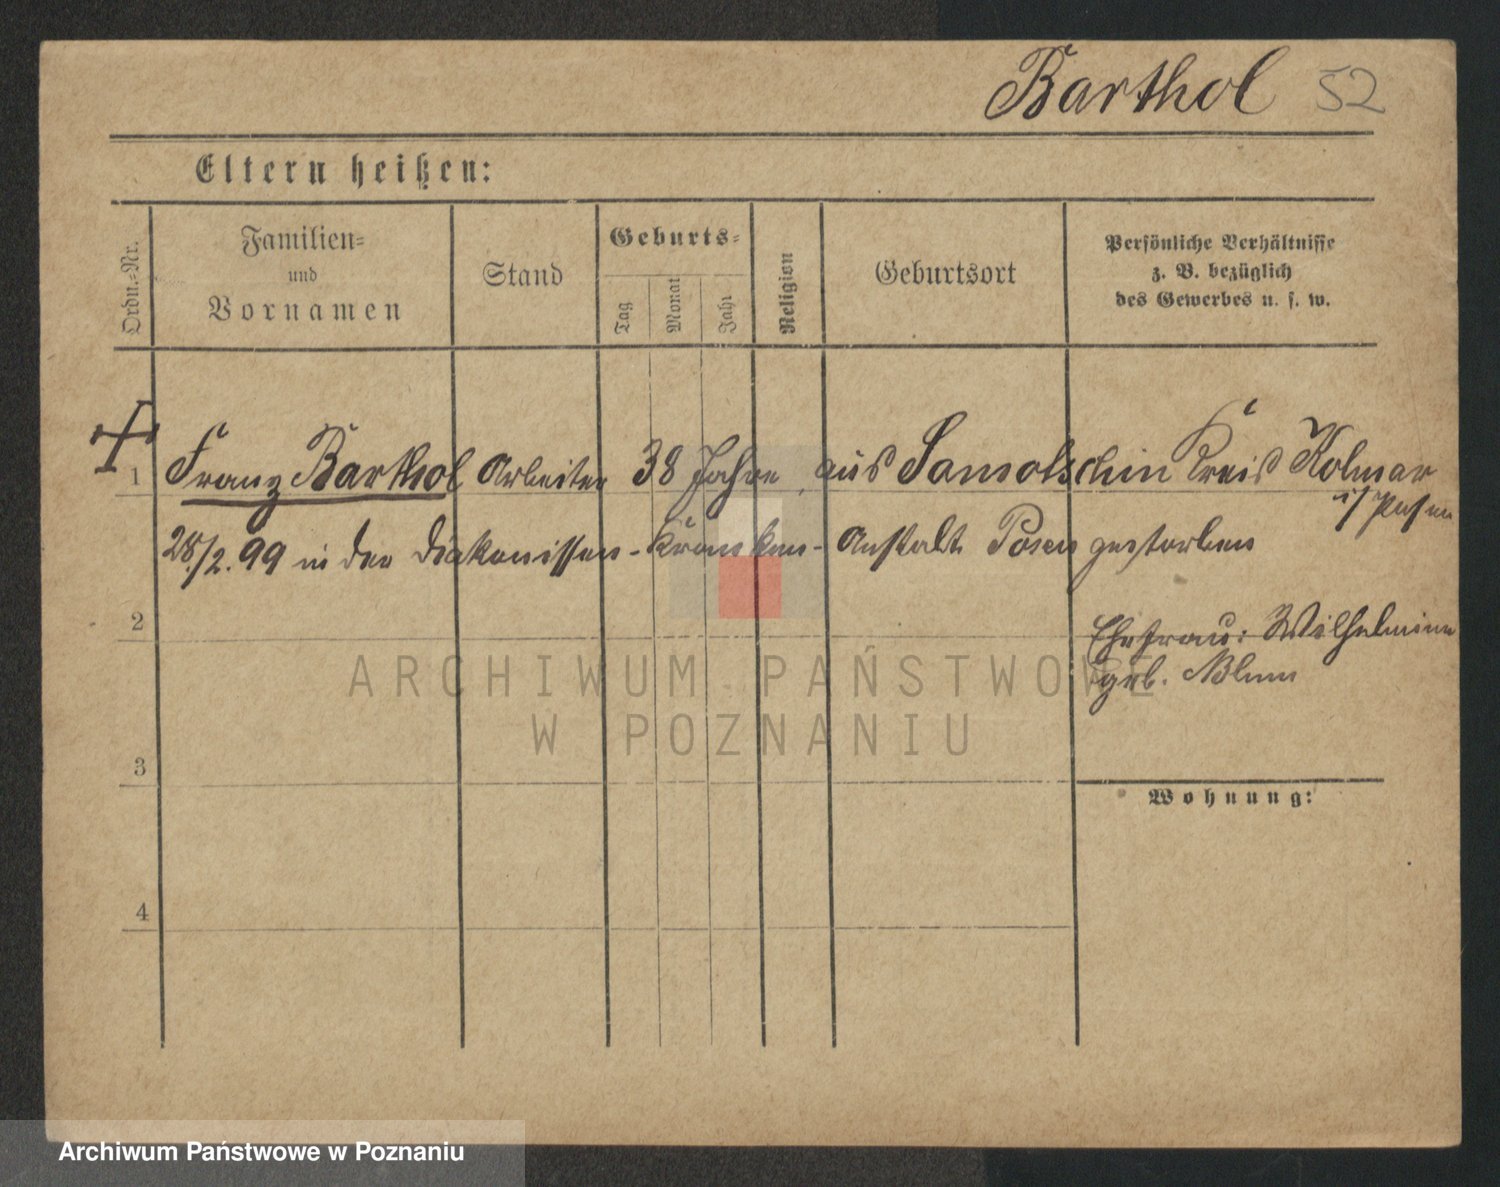 Barthol 52
Eltern heißen:
Ordn.=Nr.
Familien=
und
Vornamen
Stand
Geburts=
Tag
Monat
Jahr
Religion
Geburtsort
Persönliche Verhältnisse
z. B. bezüglich
des Gewerbes u. s. w.
1 Franz Barthol Arbeiter 38 Jahre, aus Samotschin Kreis Kolmar
i/Posen
28./2. 99 in der Diakonissen-Kranken-Anstalt Posen gestorben
2
Ehefrau: Wilhelmine
geb. Blum
ARCHIWUM PAŃSTWOWE
W POZNANIU
3
Wohnung:
4
Archiwum Państwowe w Poznaniu